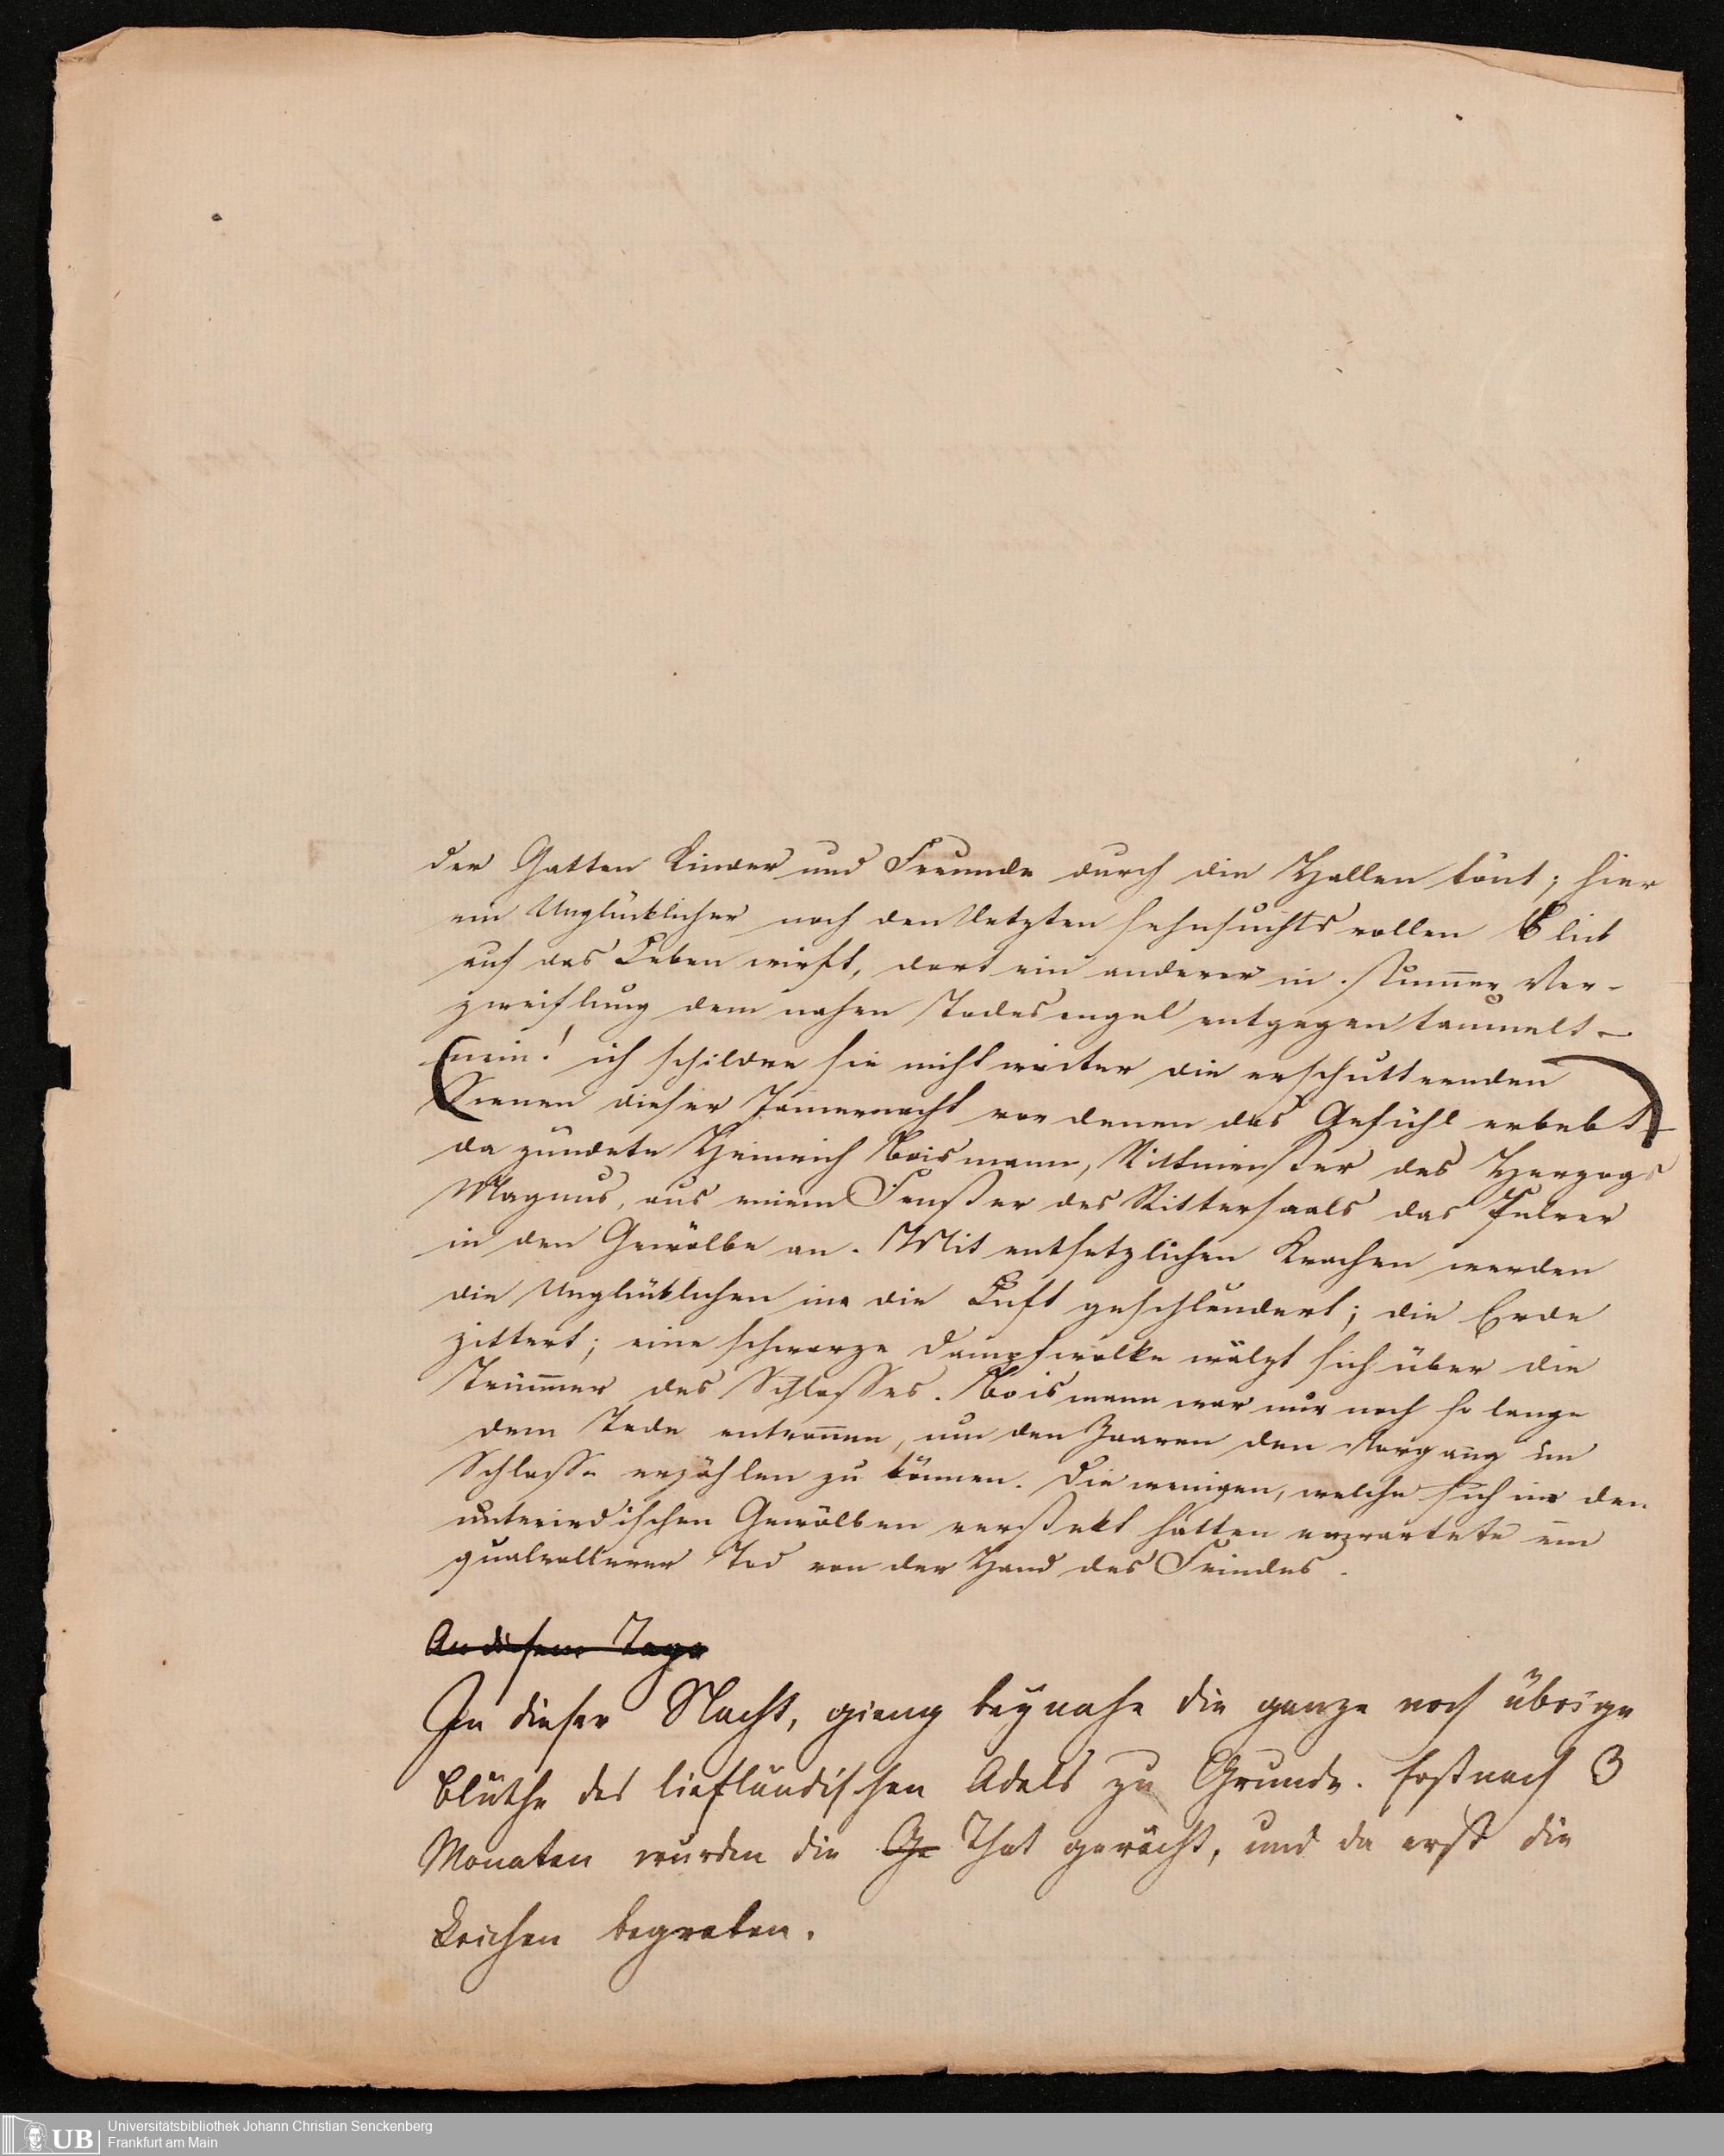 der Gatten Kinder und Freunde durch die Hallen tönt; hier
ein Unglücklicher noch den letzten sehnsuchtsvollen Blick
auf das Leben wirft, dort ein anderer in stum̅er Ver-
zweiflung dem nahen Todesengel entgegen taumelt –
(nein! ich schildre sie nicht weiter die erschütternden
Scenen dieser Jam̅ernacht vor denen das Gefühl erbebt) –
da zündete Heinrich Boismann, Rittmeister des Herzogs
Magnus, aus einem Fenster des Rittersaals das Pulver
in den Gewölbe an. Mit entsetzlichen Krachen werden
die Unglüklichen in die Luft geschleudert; die Erde
zittert; eine schwarze Dampfwolke wälzt sich über die
Trüm̅er des Schlosses. Boismann war nur noch so lange
dem Tode entron̅en, um den Zaaren den Vorgang im
Schlosse erzählen zu können. Die wenigen, welche sich in den
unterirdischen Gewölben verstekt hatten erwartete ein
qualvollerer Tod von der Hand des Feindes.
An diesem Tage
In dieser Nacht, gieng beynahe die ganze noch übrige
Blüthe des liefländischen Adels zu Grunde. Erst nach 3
Monaten wurden die Ge That gerächt, und da erst die
Leichen begraben.
UB
Universitätsbibliothek Johann Christian Senckenberg
Frankfurt am Main